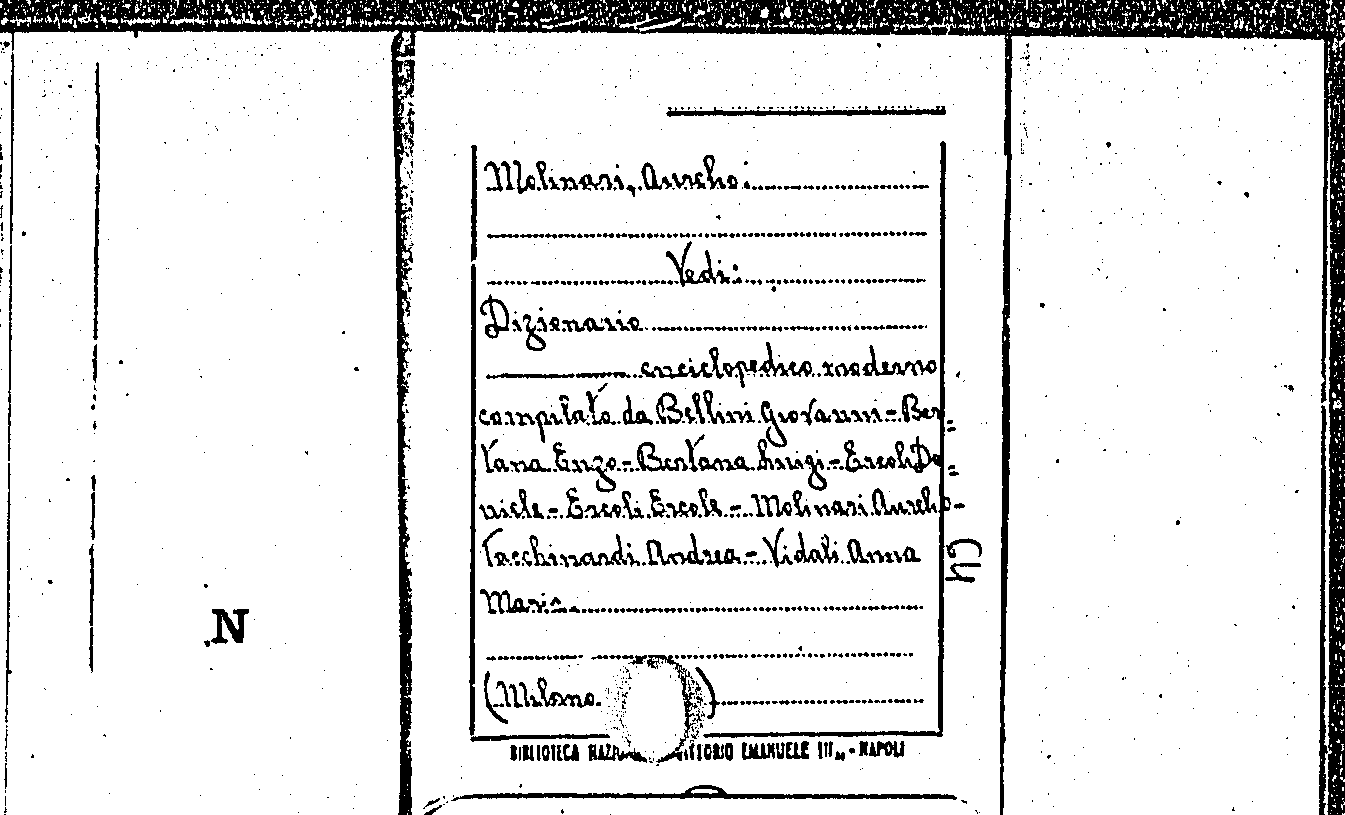 Molinari, Aurelio:
Vedi:
Dizionario
enciclopedico moderno
compilato da Bellini Giovanni - Ber=
tana Enzo - Bertana Luigi - Ercoli Da=
niele - Ercoli Ercole - Molinari Aurelio -
Tacchinardi Andrea - Vidali Anna
Maria.
(Milano. )
BIBLIOTECA VITTORIO EMANUELE III - NAPOLI
N